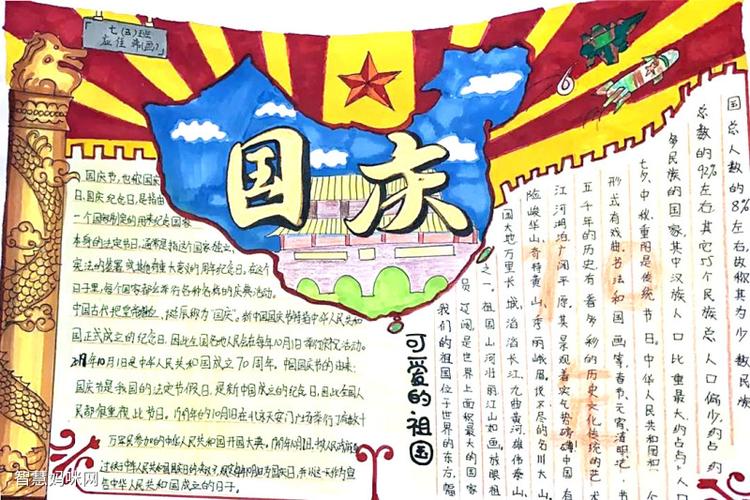 七(五)班
应佳
国庆
国庆节,也被
日、国庆纪念日,是指由
一个国家制定的用来纪念国家
本身的法定节日,通常是指这个国家独立、
宪法的签署或其他有重大意义的周年纪念日,在这个
日子里,每个国家都会举行各种各样的庆典活动。
中国古代把皇帝 称为"国庆"。新中国国庆节特指中华人民共和
国正式成立的纪念日,因此全国各地人民会在每年10月1日举行
年10月1日是中华人民共和国成立70周年。中国国庆节的由来:
国庆节是我国的法定节假日,是新中国成立的纪念日,因此全国人
民都很重视此节日。1949年的10月1日在北京天安门广场举行了
万军民参加的中华人民共和国开国大典。
与中华人民共和国成立的日子。
可爱的祖国
我们的祖国位于世界的东方,幅
员辽阔,是世界上面积最大的国家
之一。祖国山河壮丽江山如画,放眼祖
国大地万里长城,滔滔长江,九曲黄河,雄伟泰山,
险峻华山,奇特黄山,秀丽峨眉,说不尽的名川大山。
江河湖泊广阔平原,其景观着实气势磅礴!中国
五千年的历史有着多彩的历史文化,传统的艺
形式有戏曲、书法和国画等,春节、元宵、清明、
七夕、中秋、重阳是传统节日。中华人民共和国和一个
多民族的国家,其中汉族人口比重最大,约占
总数的92%左右,其它55个民族总人口偏少,约占
国总人数的8%左右,故称其为少数民族
智慧妈咪网